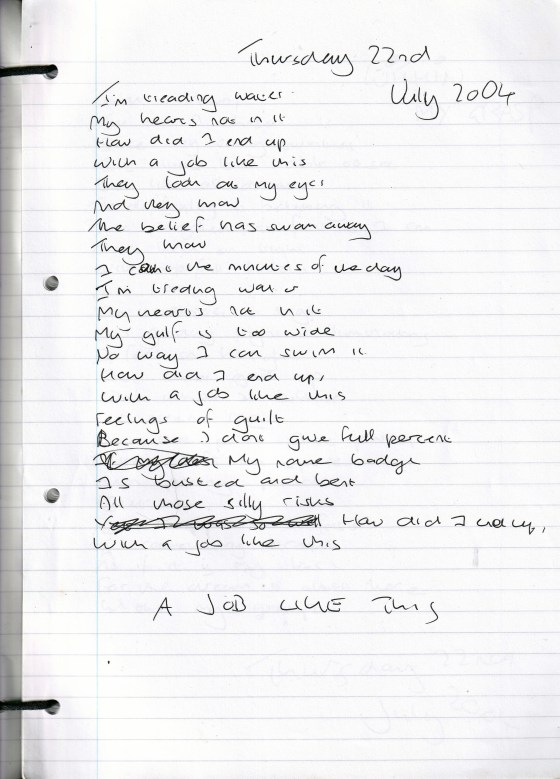 Thursday 22nd
July 2004
I'm treading water
My hearts not in it
How did I end up
With a job like this
They look at my eyes
And they know
The belief has swam away
They know
I count the minutes of the day
I'm treading water
My hearts not in it
My gulf is too wide
No way I can swim it
How did I end up,
With a job like this
Feelings of guilt
Because I dont give full percent
My name badge
Is busted and bent
All those silly risks
How did I end up,
With a job like this
A JOB LIKE THIS